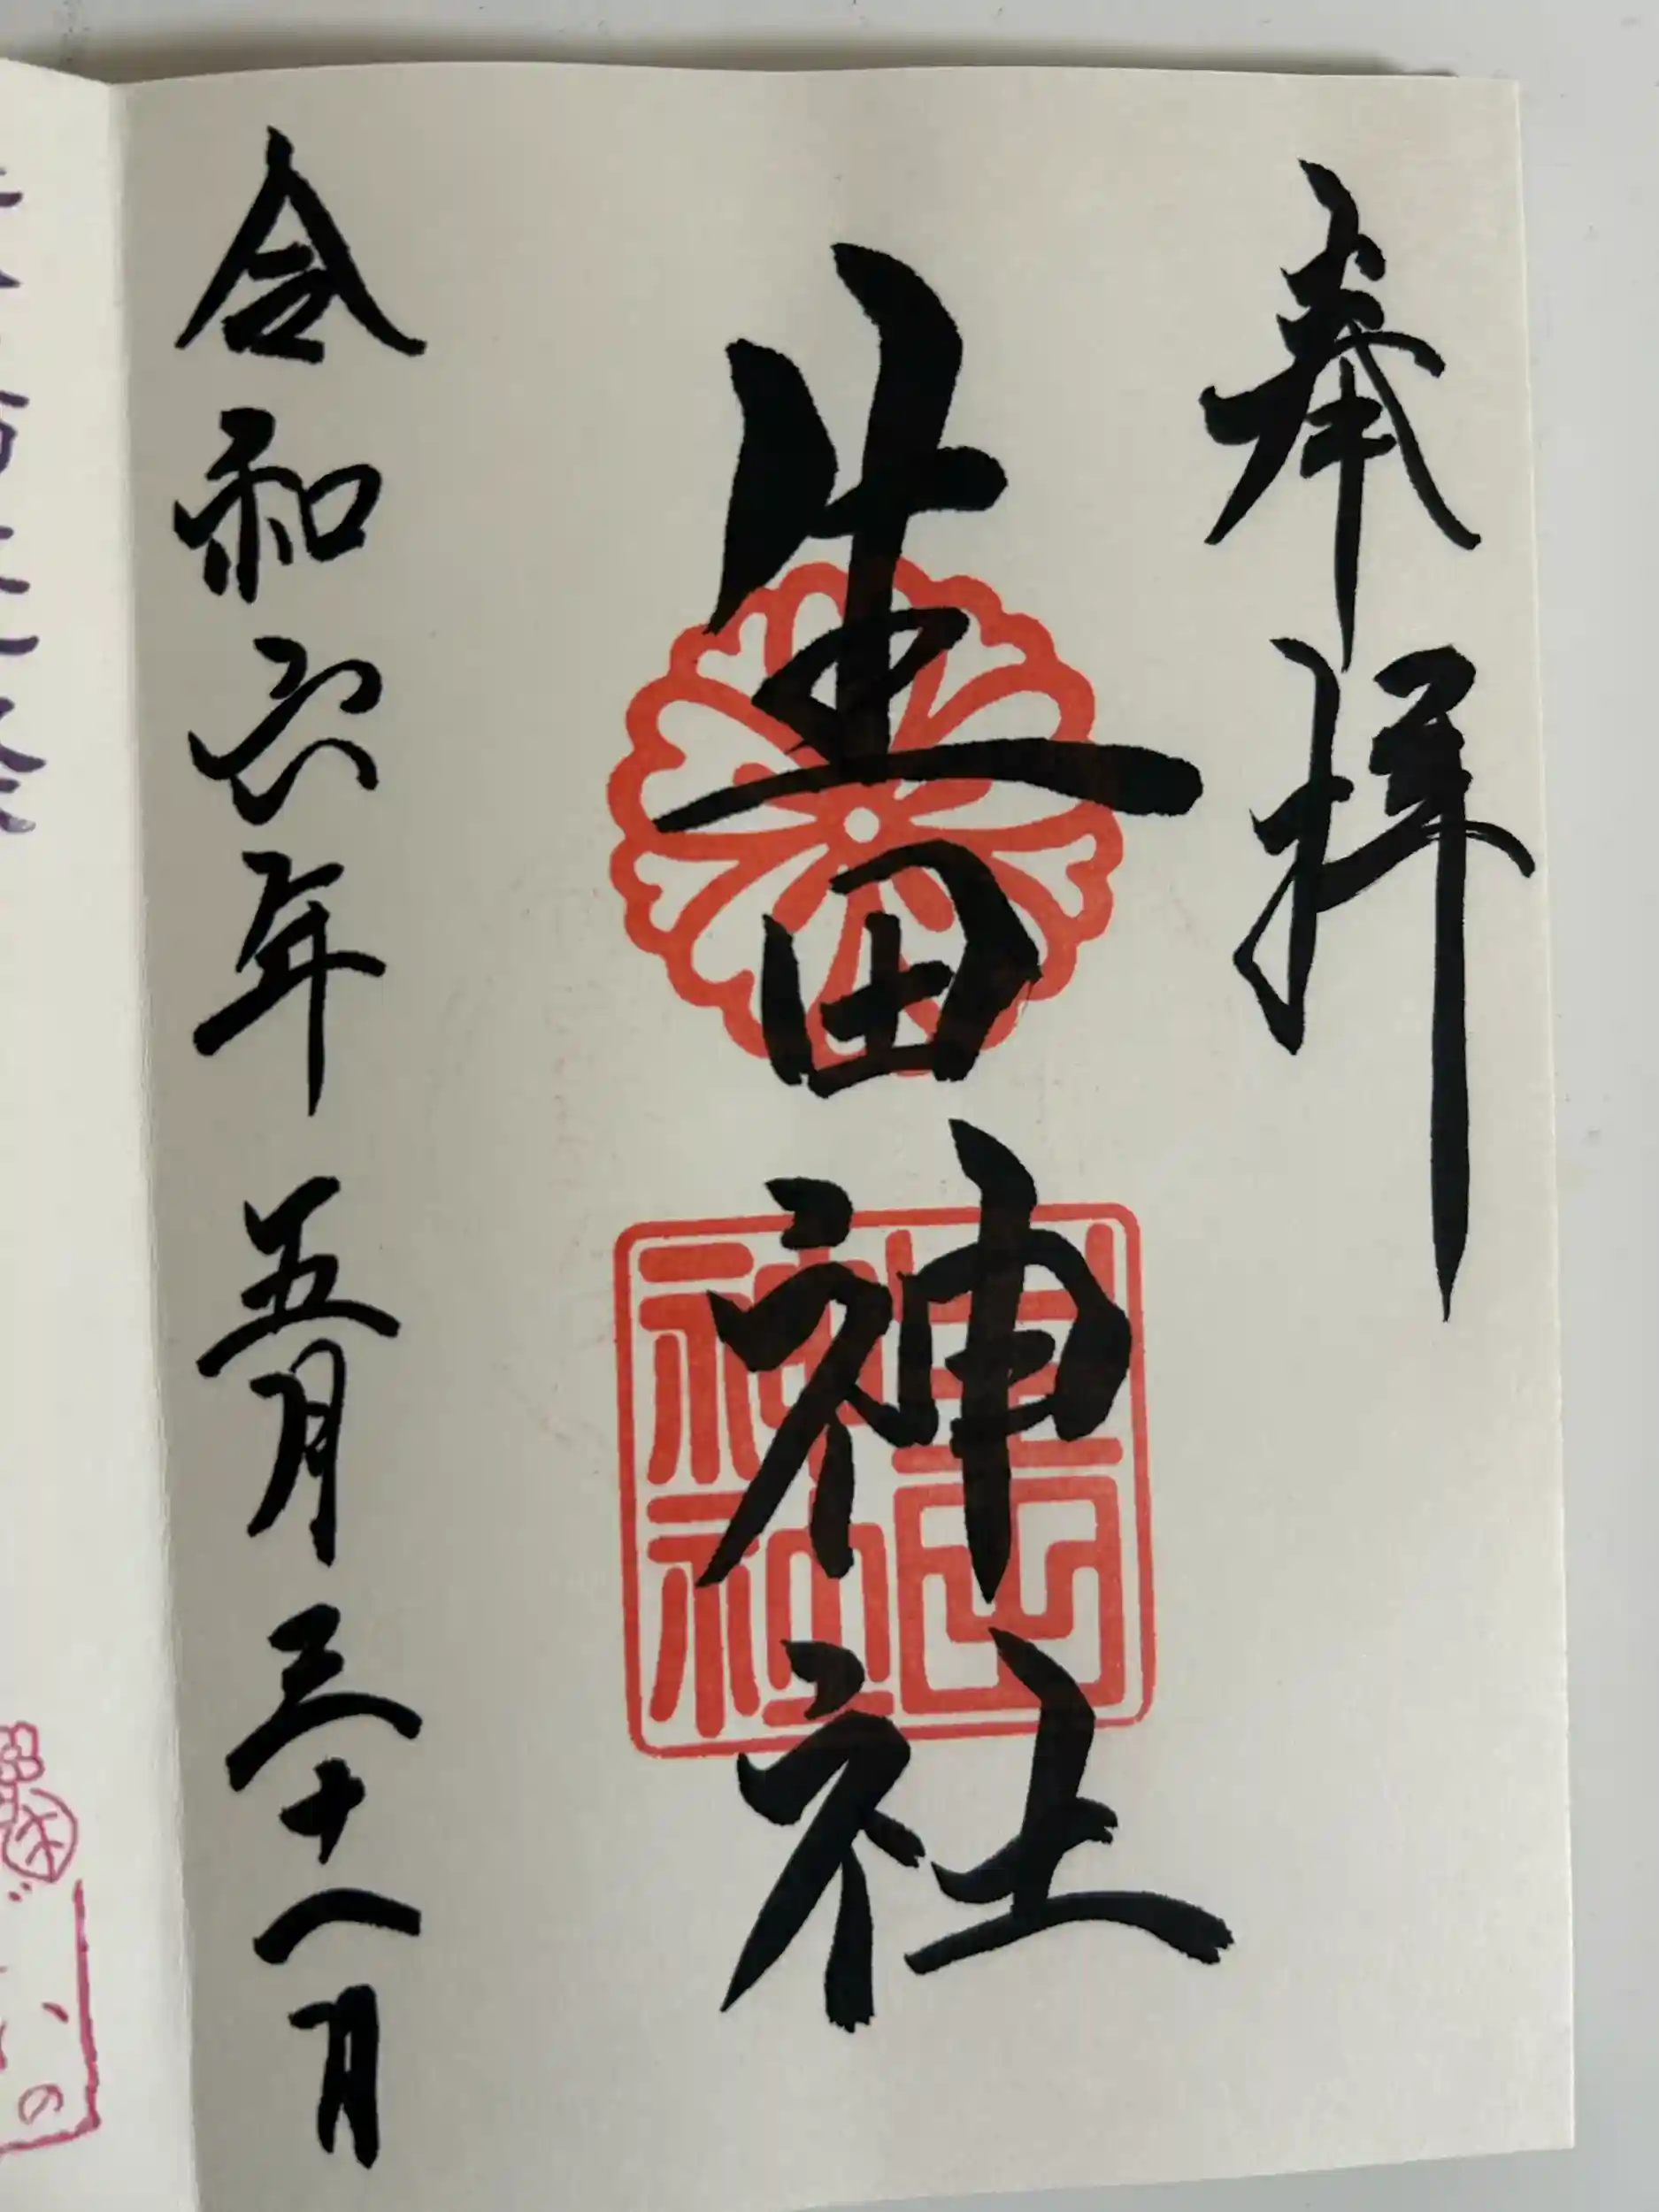 奉拝
生田神社
生田
神社
令和六年 五月三十一日